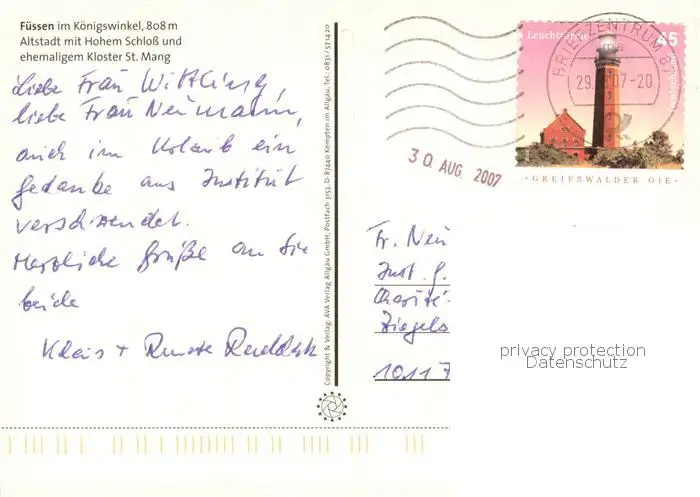 Füssen im Königswinkel, 808 m
Altstadt mit Hohem Schloß und
ehemaligem Kloster St. Mang
Liebe Frau Wittling,
liebe Frau Neumann,
auch im Urlaub ein
Gedanke ans Institut
verschwendet.
Herzliche Grüße an Sie
beide
+ Renate
Copyright & Verlag: AVA Verlag Allgäu GmbH, Postfach 3153, D-87440 Kempten im Allgäu, Tel.: 0831/5714 20
Leuchttürme 45
Deutschland
GREIFSWALDER OIE
BRIEFZENTRUM 8
29. 07-20
30. AUG. 2007
Fr. Neu
Inst. f.
Charité
Ziegels
10117
privacy protection
Datenschutz